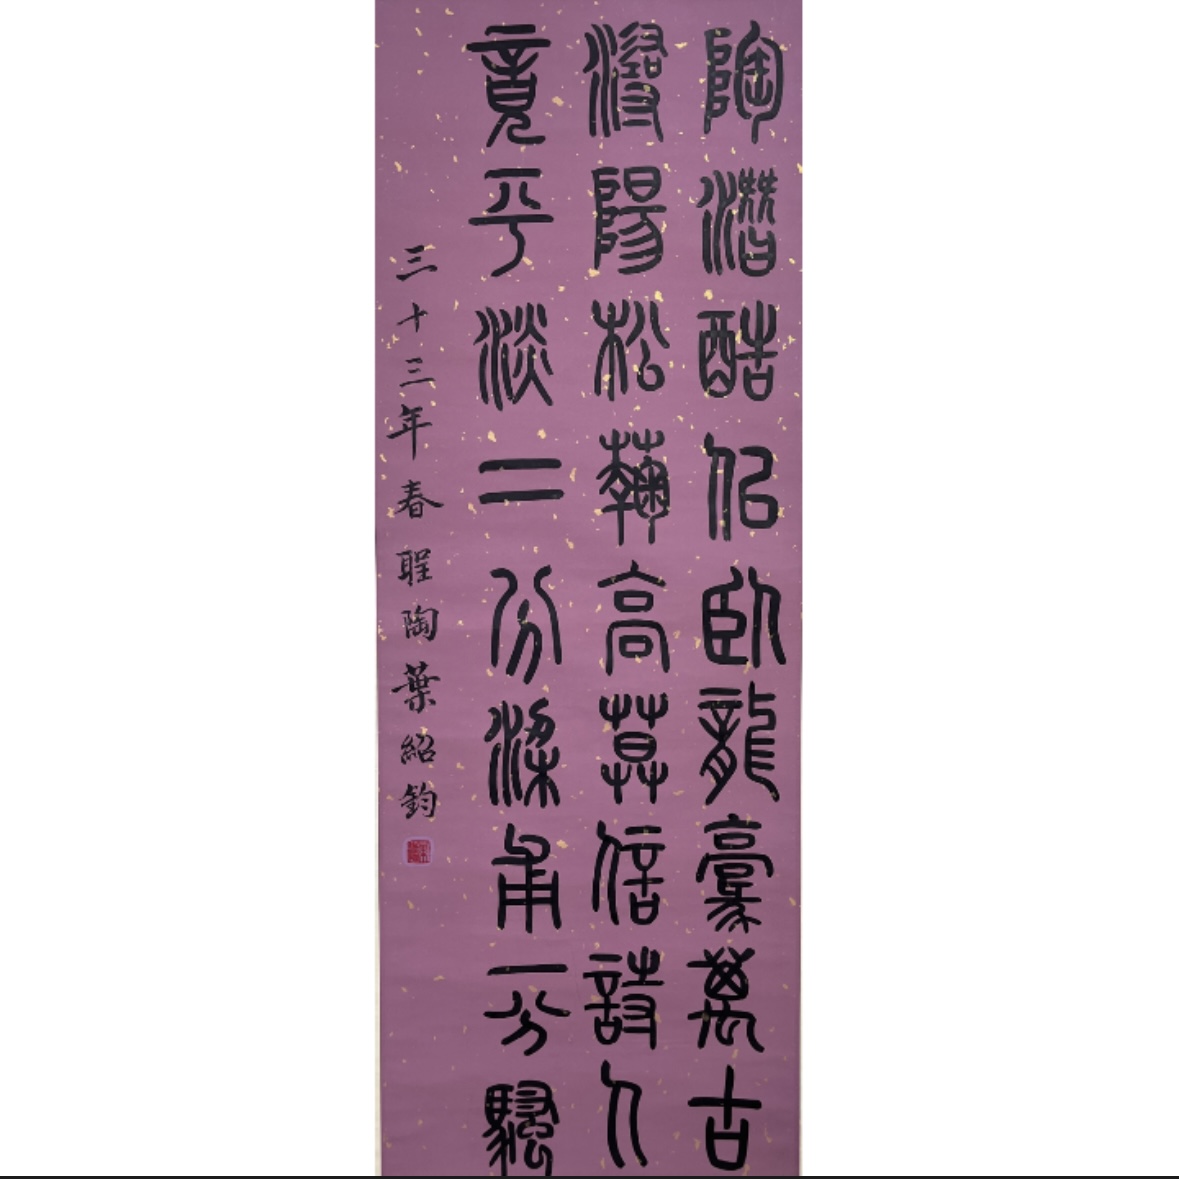 陶潛酷佀臥龍豪萬古
潯陽松菊高莫信詩人
竟平淡二分梁甫一分騷
三十三年春聖陶葉紹鈞